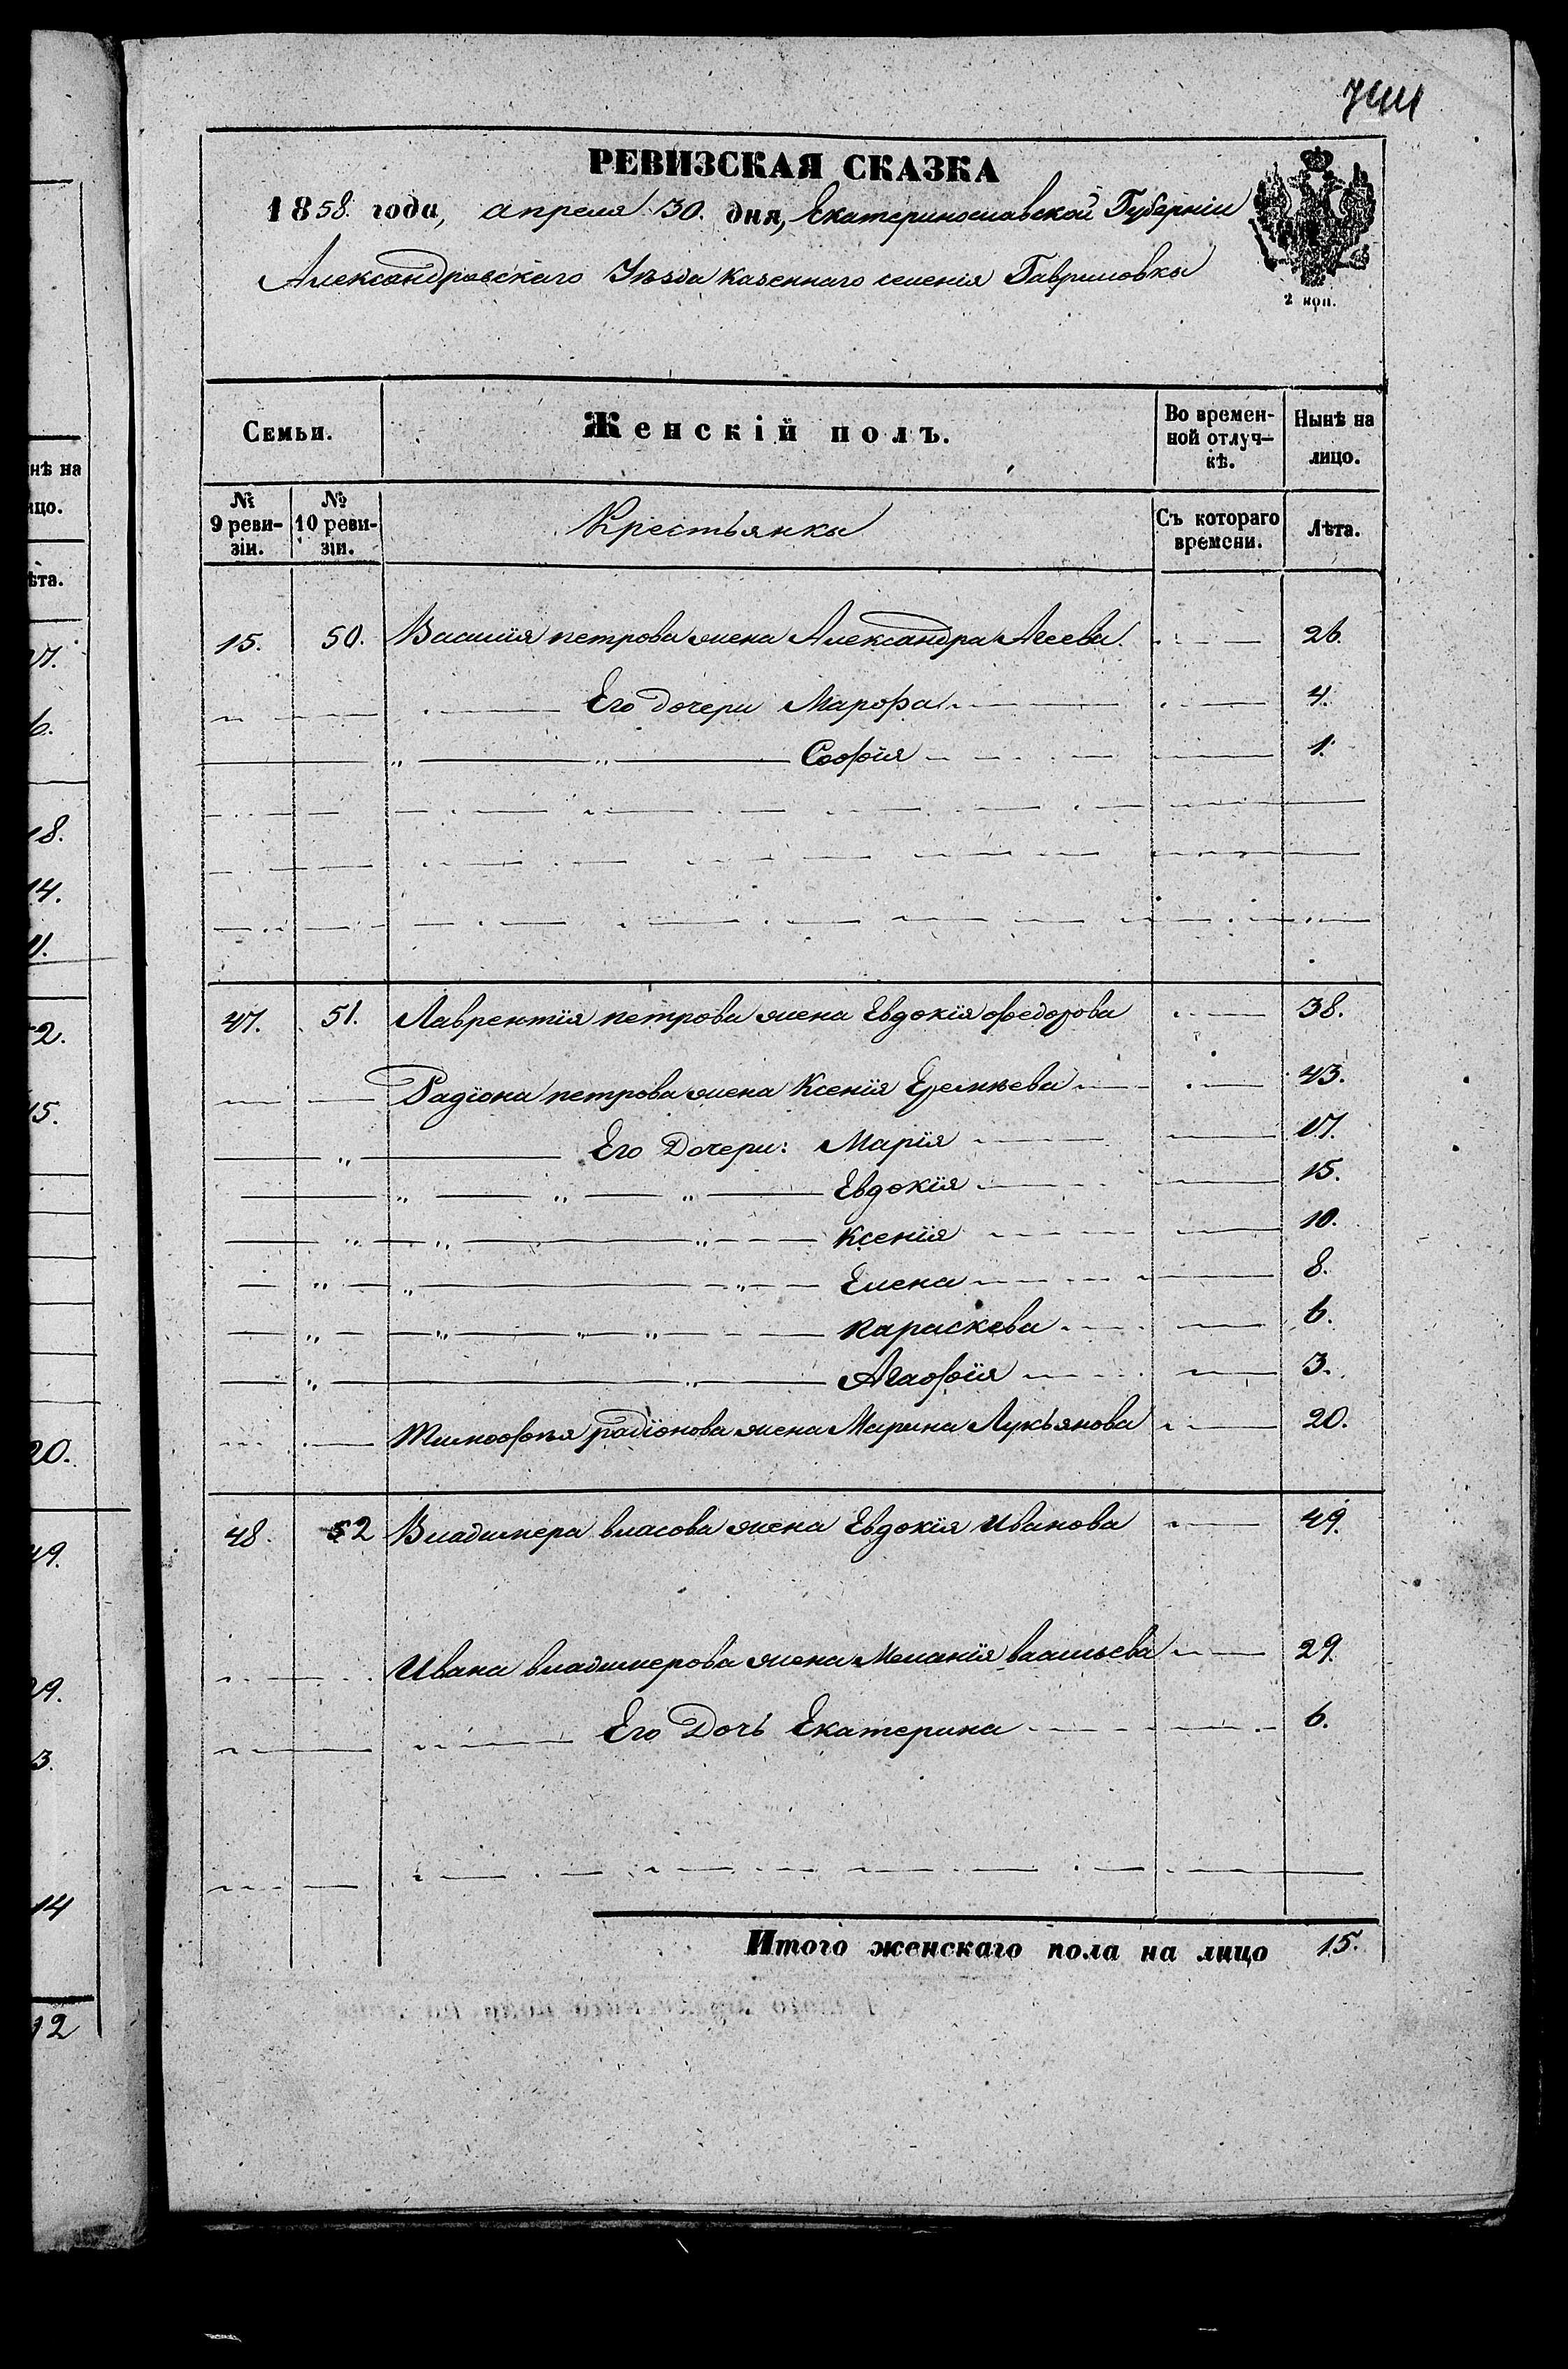 нѣ на
ицо.
ѣта.
17.
6.
18.
14.
11.
2.
15.
20.
49.
29.
3.
14
12
РЕВИЗСКАЯ СКАЗКА
1858. года, апреля 30. дня, Екатеринославской Губерніи
Александровскаго Уѣзда казеннаго селенія Гавриловки
2 коп.
Семьи. Женскій полъ. Во времен- Ныне на
ной отлуч- лицо.
кѣ.
№ 9 реви- зіи. № 10 реви- зіи. Крестьянки Съ котораго времени. Лѣта.
15. 50. Василія петрова жена Александра Агеева. 26.
Его дочери Марфа 4.
Софія 1.
47. 51. Лаврентія петрова жена Евдокія федорова 38.
Радіона петрова жена Ксенія Еремѣева 43.
Его Дочери: Марія 17.
Евдокія 15.
Ксенія 10.
Елена 8.
параскева 6.
Агафія 3.
Тимофѣя радіонова жена Марина Лукьянова 20.
48. 52 Владимера власова жена Евдокія Иванова 49.
Ивана владимерова жена Меланія васильева 29.
Его Дочь Екатерина 6.
Итого женскаго пола на лицо 15.